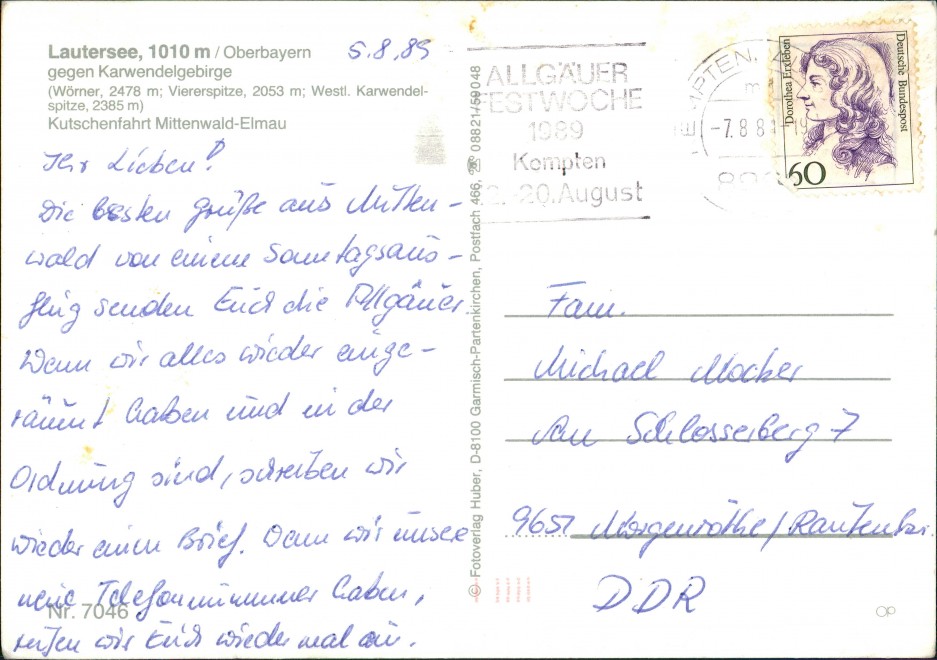 Lautersee, 1010 m / Oberbayern
gegen Karwendelgebirge
(Wörner, 2478 m; Viererspitze, 2053 m; Westl. Karwendel-
spitze, 2385 m)
Kutschenfahrt Mittenwald-Elmau
5.8.89
Ihr Lieben!
Die besten Grüße aus Mitten-
wald von einem Sonntagsaus-
flug senden Euch die Allgäuer.
Wenn wir alles wieder einge-
räumt haben und in der
Ordnung sind, schreiben wir
wieder einen Brief. Wenn wir unsere
neue Telefonnummer haben,
rufen wir Euch wieder mal an.
Nr. 7046
© Fotoverlag Huber, D-8100 Garmisch-Partenkirchen, Postfach 466, ☎ 08821/59048
ALLGÄUER
FESTWOCHE
1989
Kempten
-20. August
-7.8.8
Dorothea Erxleben
Deutsche Bundespost
60
Fam.
Michael Mocker
Am Schlosserberg 7
9657 Morgenröthe/Rautenkr.
DDR